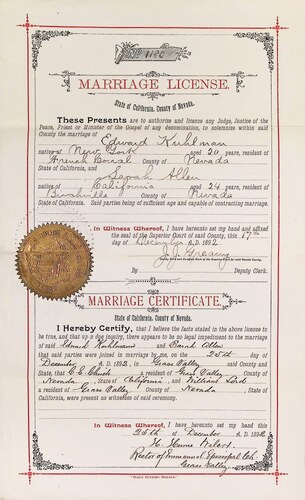 No. 1120
MARRIAGE LICENSE.
State of California, County of Nevada.
These Presents are to authorize and license any Judge, Justice of the
Peace, Priest or Minister of the Gospel of any denomination, to solemnize within said
County the marriage of
Edward Kuhlman
native of New York aged 30 years, resident of
French Corral County of Nevada
State of California, and
Sarah Allen
native of California aged 24 years, resident of
Birchville County of Nevada
State of California. Said parties being of sufficient age and capable of contracting marriage.
In Witness Whereof, I have hereunto set my hand and affixed
the seal of the Superior Court of said County, this 17th
day of December A.D. 1892
J. J. Greany
By Deputy Clerk.
MARRIAGE CERTIFICATE.
State of California, County of Nevada.
I Hereby Certify, that I believe the facts stated in the above license to
be true, and that upon due inquiry, there appears to be no legal impediment to the marriage
of said Edward Kuhlman and Sarah Allen
that said parties were joined in marriage by me, on the 25th day of
December 1892, in Grass Valley County and
State, that C. E. a resident of Grass Valley County of
Nevada, State of California, and William
a resident of Grass Valley County of Nevada, State of
California, were present as witnesses of said ceremony.
In Witness Whereof, I have hereunto set my hand this
25th of December A.D. 1892
Rector of Emmanuel Episcopal Ch.
Grass Valley